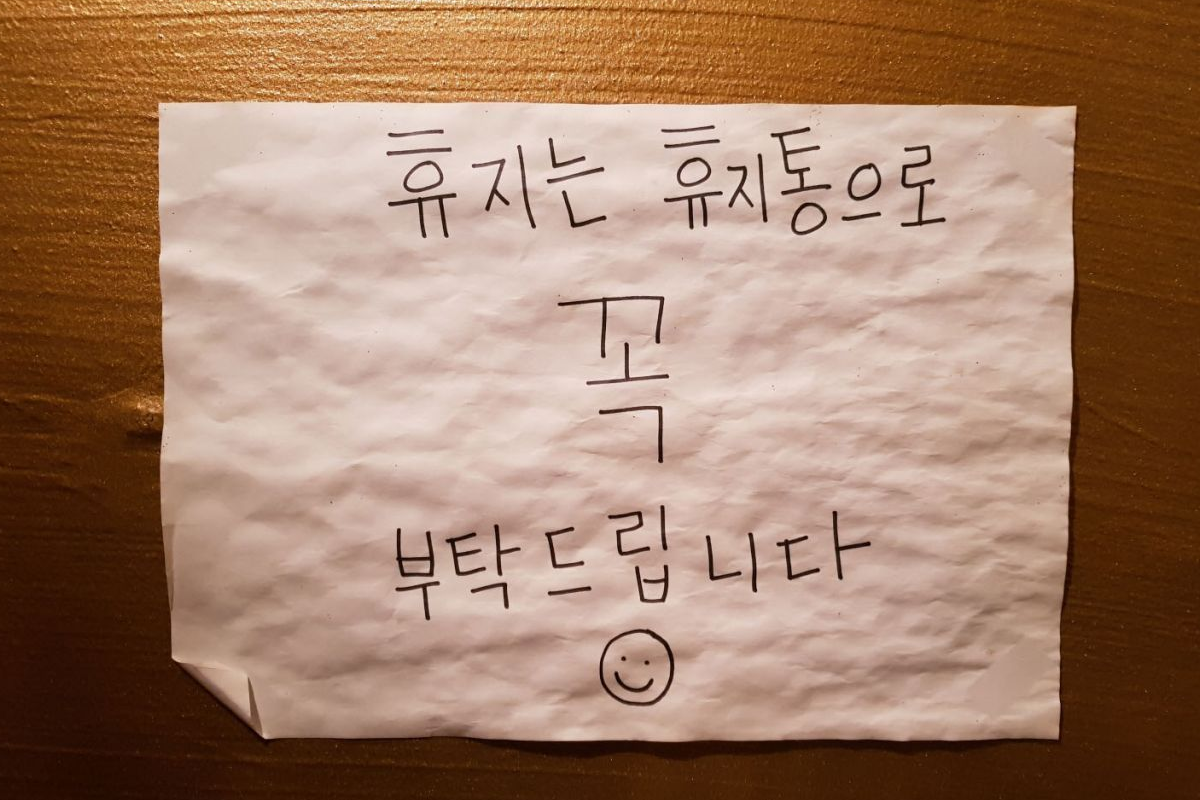 휴지는 휴지통으로
꼭
부탁드립니다